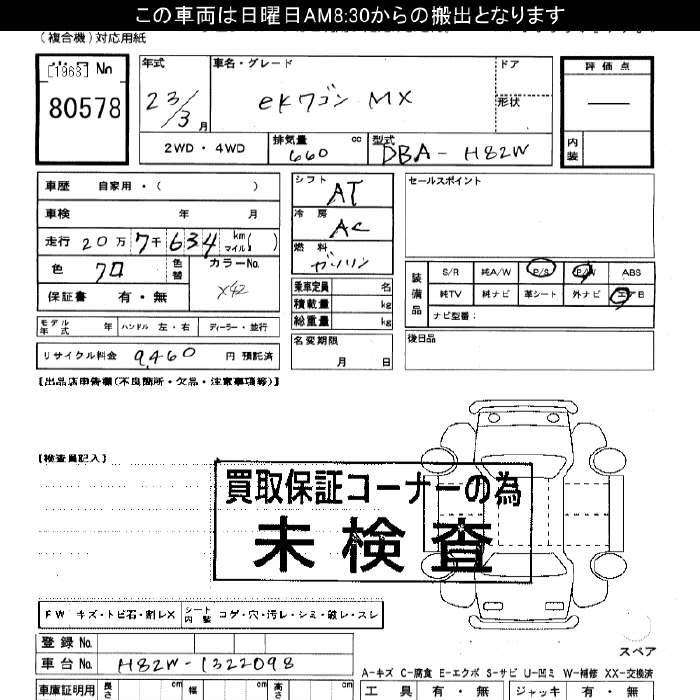 この車両は日曜日AM8:30からの搬出となります
(複合機)対応用紙
[1963] No
80578
年式 車名・グレード ドア 評価点
23/3月 eKワゴン MX 形状 ―
2WD・4WD 排気量 660 cc 型式 DBA-H82W 内装
車歴 自家用・( )
シフト AT
セールスポイント
車検 年 月
冷房 AC
走行 20万7千634 km マイル( )
燃料 ガソリン
色 クロ 色替 カラーNo. X42
装備品 S/R 純A/W P/S P/W ABS
保証書 有・無
乗車定員 名
純TV 純ナビ 革シート 外ナビ エアB
積載量 kg
ナビ型番:
モデル年式 年 ハンドル 左・右 ディーラー・並行
総重量 kg
リサイクル料金 9,460 円 預託済
名変期限 月 日
後日品
【出品店申告欄(不良箇所・欠品・注意事項等)】
【検査員記入】
買取保証コーナーの為
未検査
FW キズ・トビ石・割レX シート内装 コゲ・穴・汚レ・シミ・破レ・スレ
登録No.
スペア
車台No. H82W-1322098
A-キズ C-腐食 E-エクボ S-サビ U-凹ミ W-補修 XX-交換済
車庫証明用 長さ cm 幅 cm 高さ cm
工具 有・無 ジャッキ 有・無